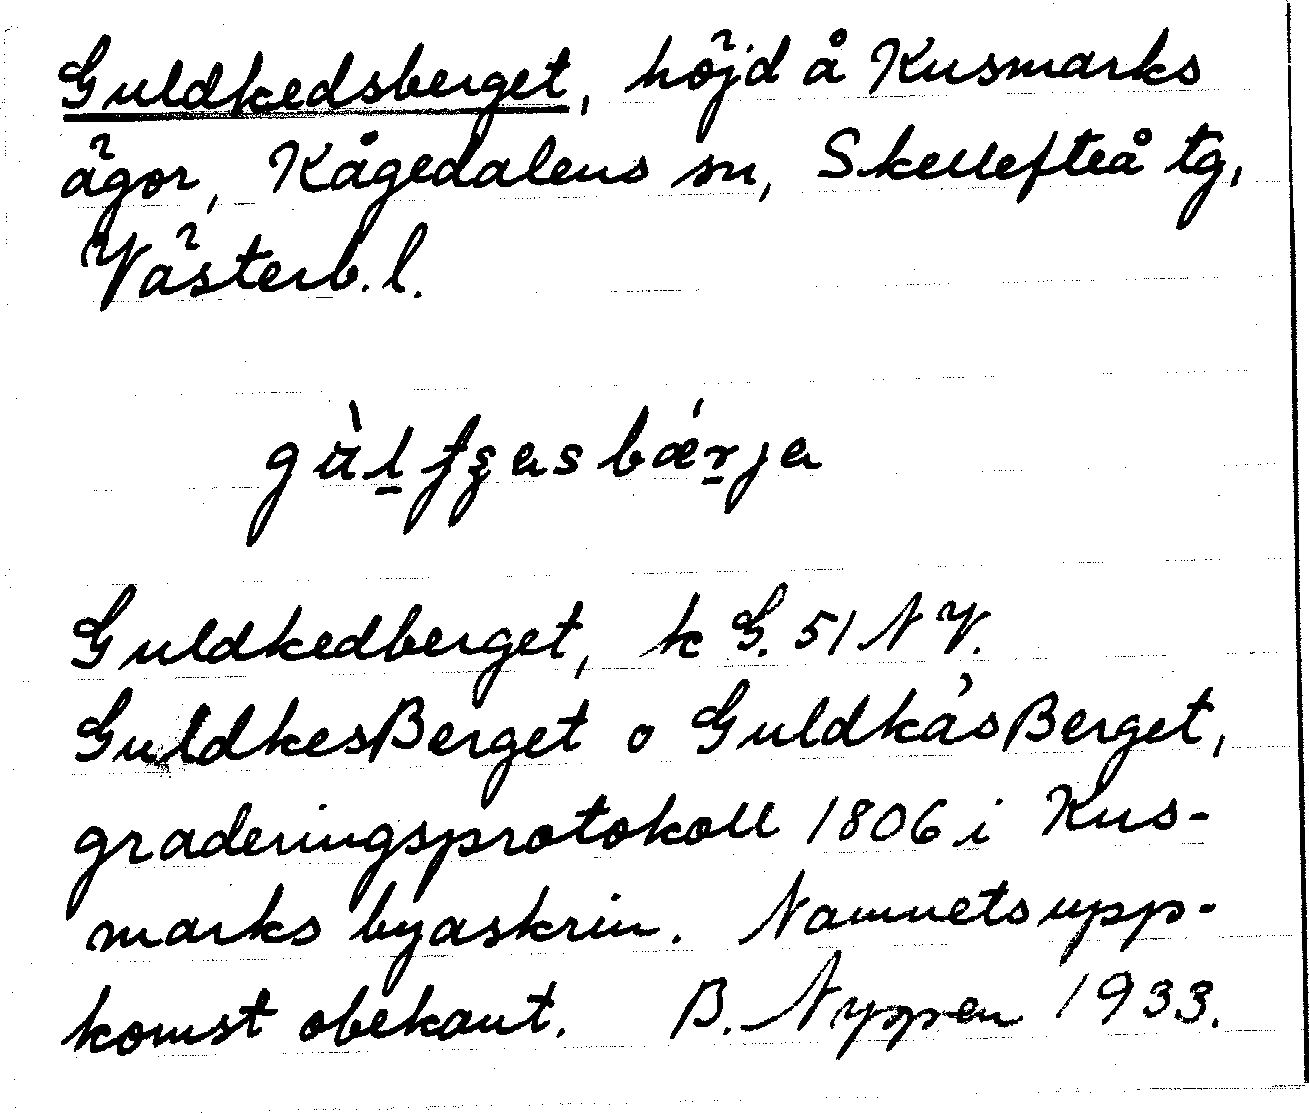 Guldkedsberget, höjd å Kusmarks
ägor, Kågedalens sn, Skellefteå tg,
Västerb. l.
Guldkedberget, k G. 51 N V.
GuldkesBerget o GuldkäsBerget,
graderingsprotokoll 1806 i Kus-
marks byaskrin. Namnets upp-
komst obekant. B. Nyppen 1933.